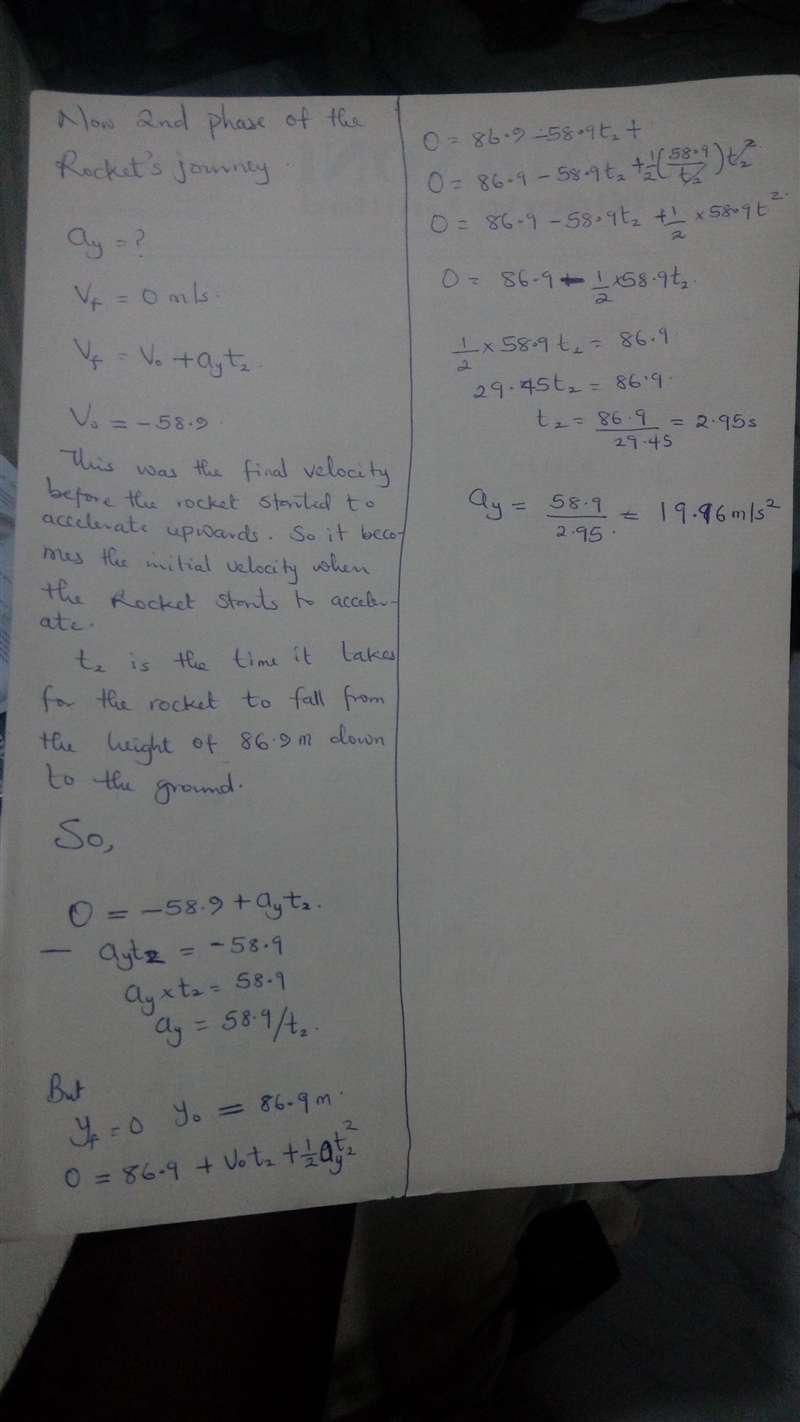 Now 2nd phase of the
Rocket's journey.
ay = ?
Vf = 0 m/s.
Vf = V₀ + ayt₂.
V₀ = -58.9.
This was the final velocity
before the rocket started to
accelerate upwards. So it beco-
mes the initial velocity when
the Rocket starts to acceler-
ate.
t₂ is the time it takes
for the rocket to fall from
the height of 86.9 m down
to the ground.
So,
0 = -58.9 + ayt₂.
- ayt₂ = -58.9
ay × t₂ = 58.9
ay = 58.9/t₂.
But
yf = 0 y₀ = 86.9 m.
0 = 86.9 + V₀t₂ + ½ayt₂²
0 = 86.9 - 58.9t₂ +
0 = 86.9 - 58.9t₂ + ½(58.9/t₂)t₂²
0 = 86.9 - 58.9t₂ + ½ × 58.9t²
0 = 86.9 - ½ × 58.9t₂
½ × 58.9t₂ = 86.9
29.45t₂ = 86.9.
t₂ = 86.9/29.45 = 2.95s
ay = 58.9/2.95. = 19.96 m/s²